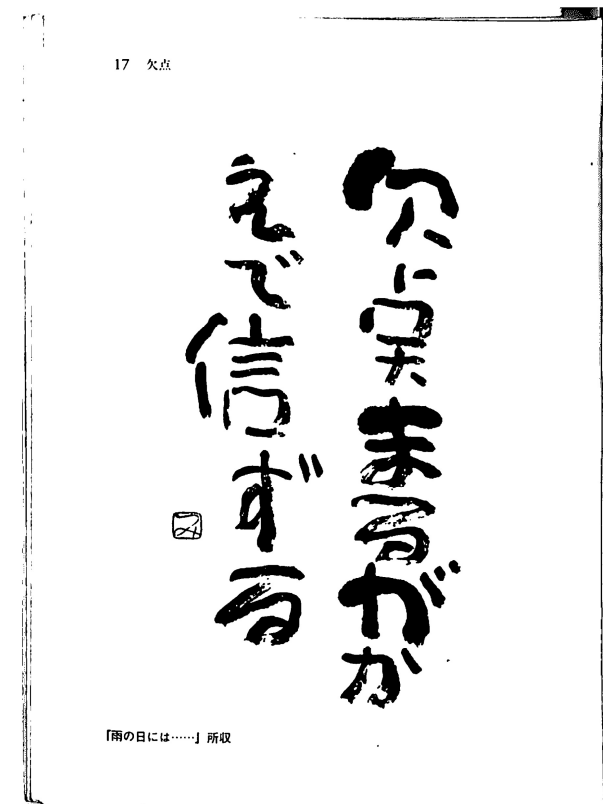 17 欠点
欠点まるがか
えで信ずる
み
『雨の日には……』所収